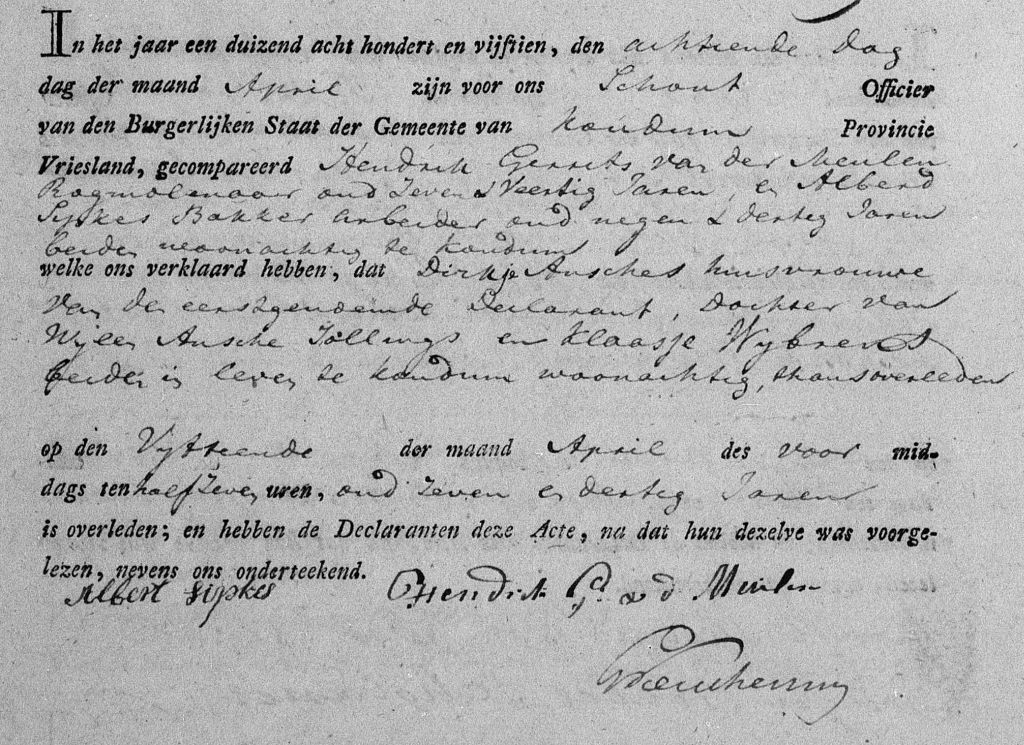 In het jaar een duizend acht hondert en vijftien, den achttiende Dag
dag der maand April zijn voor ons Schout Officier
van den Burgerlijken Staat der Gemeente van Koudum Provincie
Vriesland, gecompareerd Hendrik Gerrits van der Meulen
Rogmolenaar oud Zeven & Veertig Jaren, en Alberd
Sipkes Bakker arbeider oud negen & dertig Jaren
beiden woonachtig te Koudum
welke ons verklaard hebben, dat Dirkje Ansches huisvrouwe
van de eerstgenoemde Declarant, Dochter van
Wijlen Ansche Jollings en Klaasje Wybrens
beide in leven te Koudum woonachtig, thans overleeden
op den Vyftiende der maand April des voor mid-
dags ten half Zeven uren, oud Zeven en dertig Jaren
is overleden; en hebben de Declaranten deze Acte, na dat hun dezelve was voorge-
lezen, nevens ons onderteekend.
Albert Sipkes Hendrik G. v d Meulen